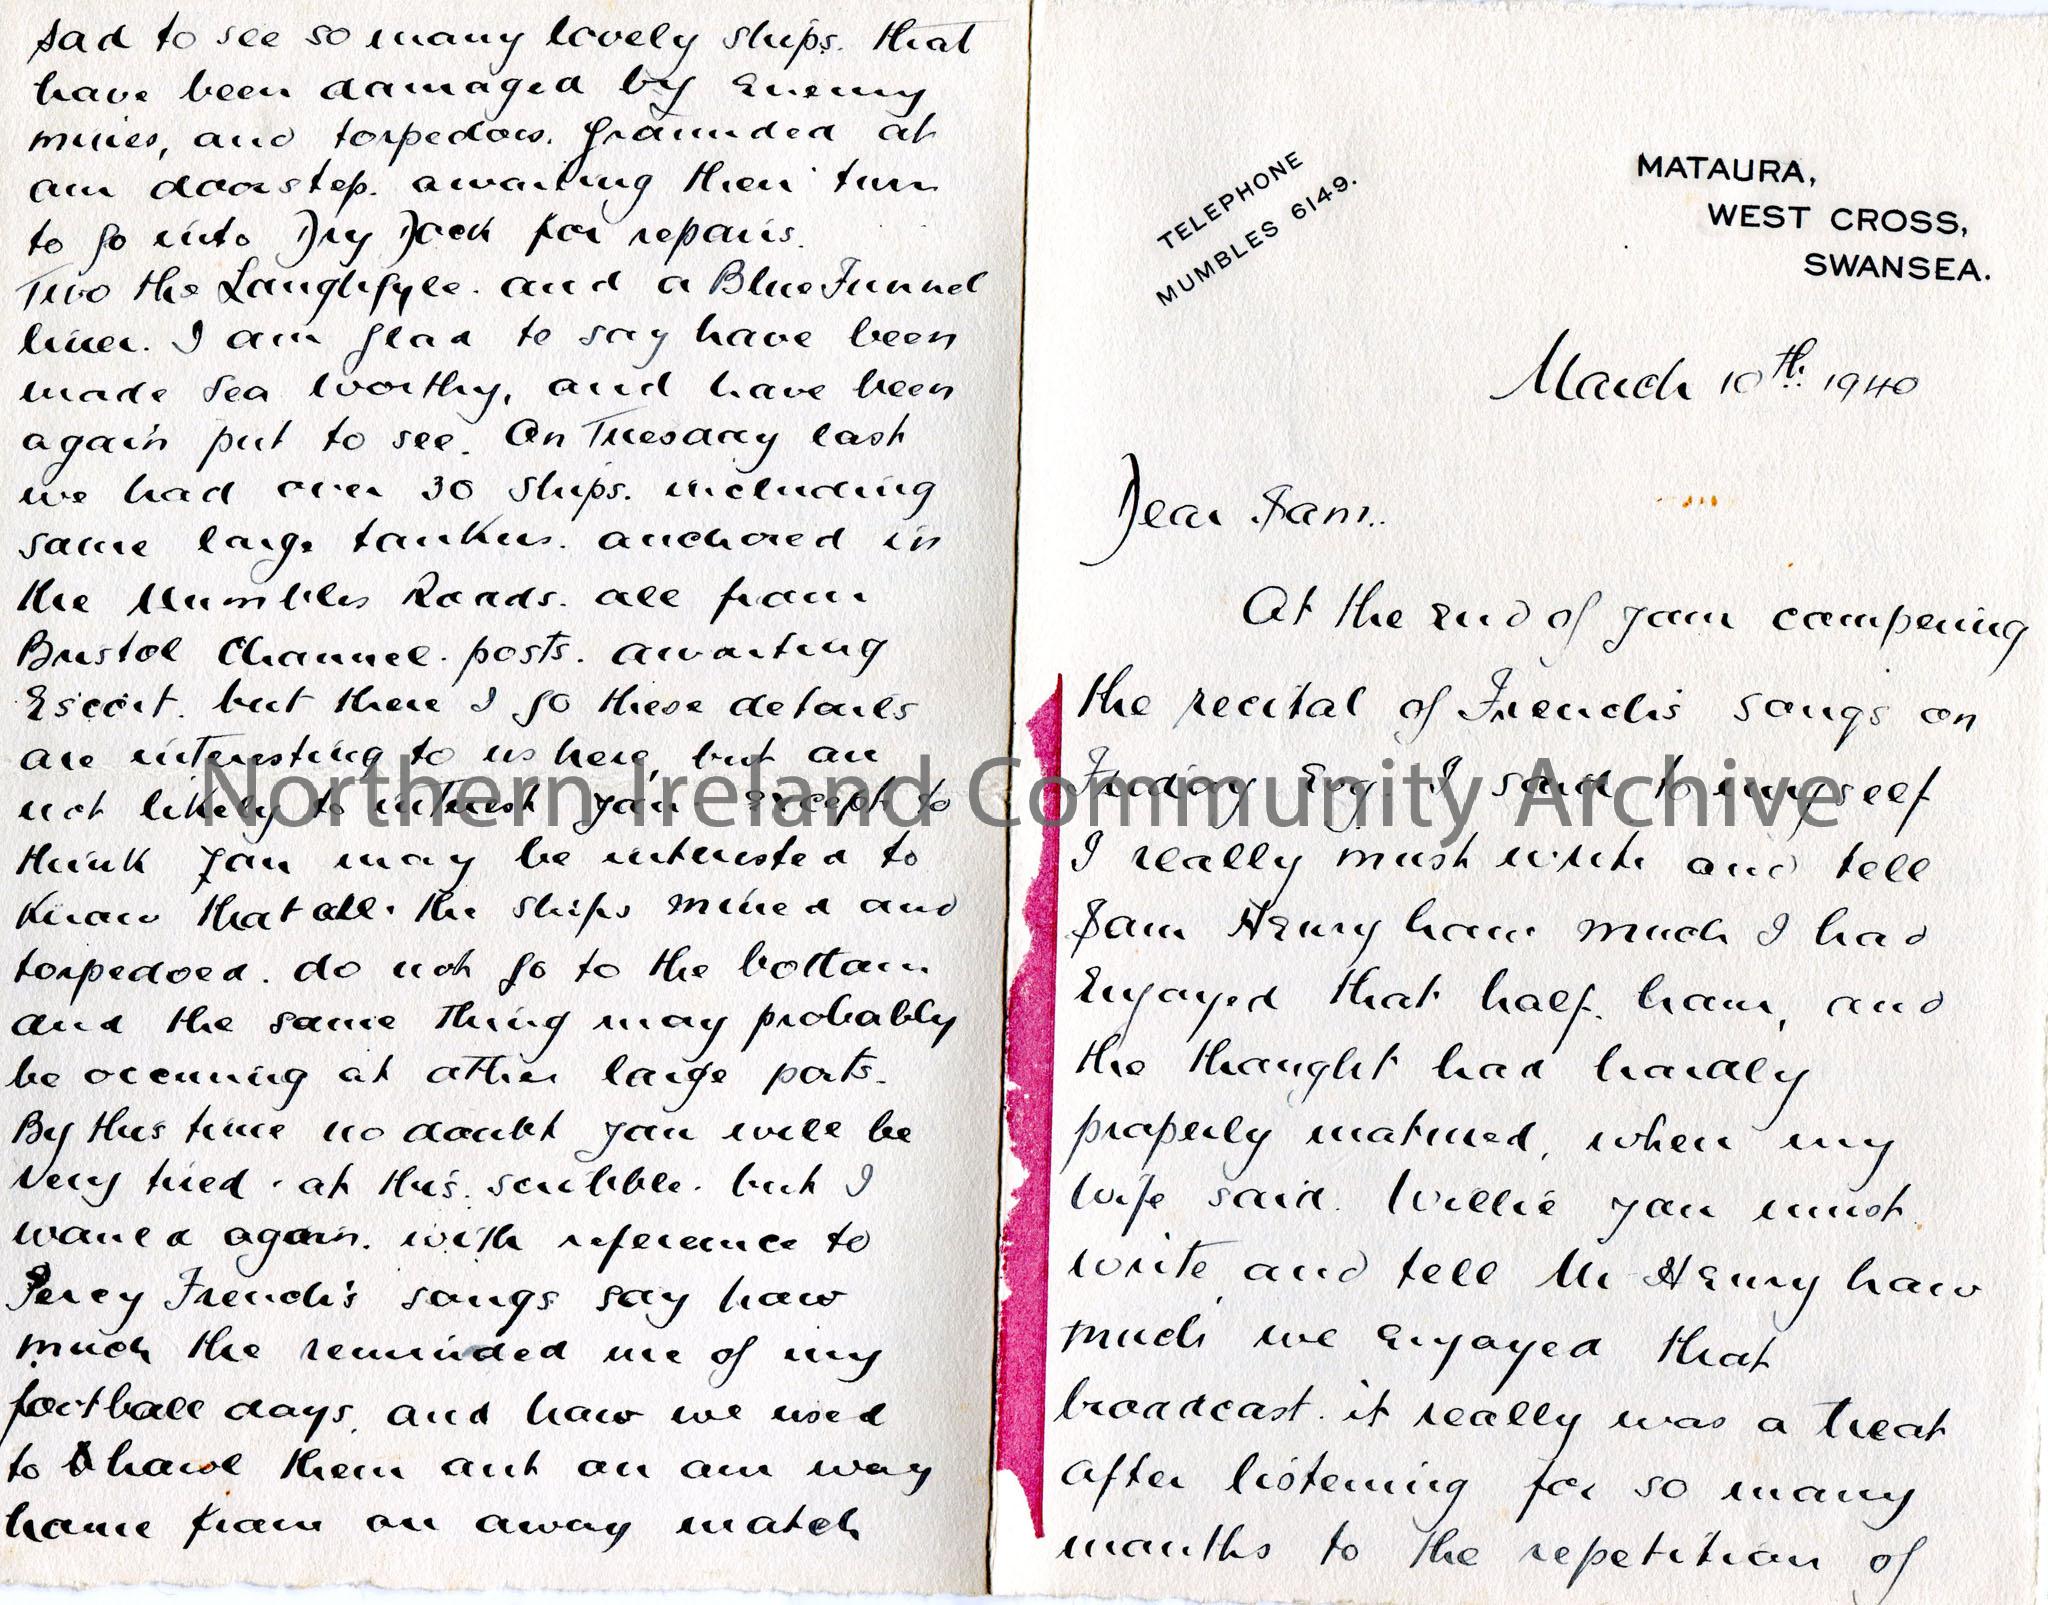 TELEPHONE
MUMBLES 6149.
MATAURA,
WEST CROSS,
SWANSEA.
March 10th. 1940
Dear Sam.
At the End of your campering
the recital of French's songs on
Friday Evg. I said to myself
I really must write and tell
Sam Henry how much I had
Enjoyed that half. hour, and
the thought had hardly
properly matured, when my
wife said. Willie you must
write and tell Mr Henry how
much we Enjoyed that
broadcast. it really was a treat
after listening for so many
months to the repetition of
sad to see so many lovely ships. that
have been damaged by Enemy
mines, and torpedoes. grounded at
our doorstep. awaiting their turn
to go into Dry Dock for repairs.
Two the and a Blue Funnel
liner. I am glad to say have been
made sea worthy, and have been
again put to see. On Tuesday last
we had over 30 ships. including
some large tankers. anchored in
the Mumbles Roads. all from
Bristol Channel. ports. awaiting
Escort. but there I go these details
are interesting to us here, but are
not likely to interest you. Except to
think you may be interested to
know that all. the ships mined and
torpedoed. do not go to the bottom
and the same thing may probably
be occurring at other large ports.
By this time no doubt you will be
very tired. at this. scribble. but I
wanted again. with reference to
Percy French's songs say how
much the reminded me of my
football days, and how we used
to howl them out on our way
home from an away match
Northern Ireland Community Archive